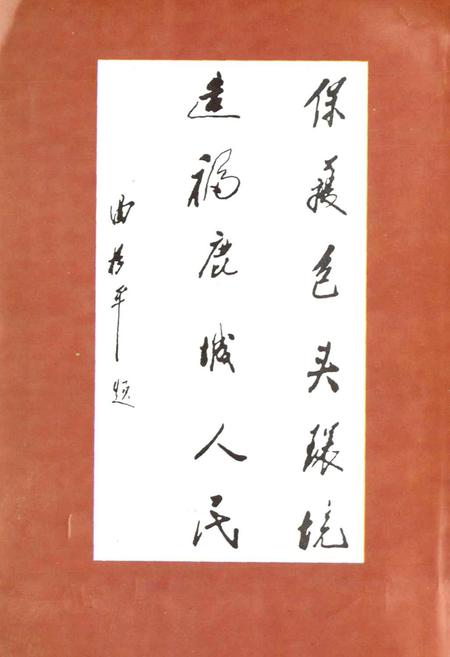 保護包头環境
造福鹿城人民
曲格平题